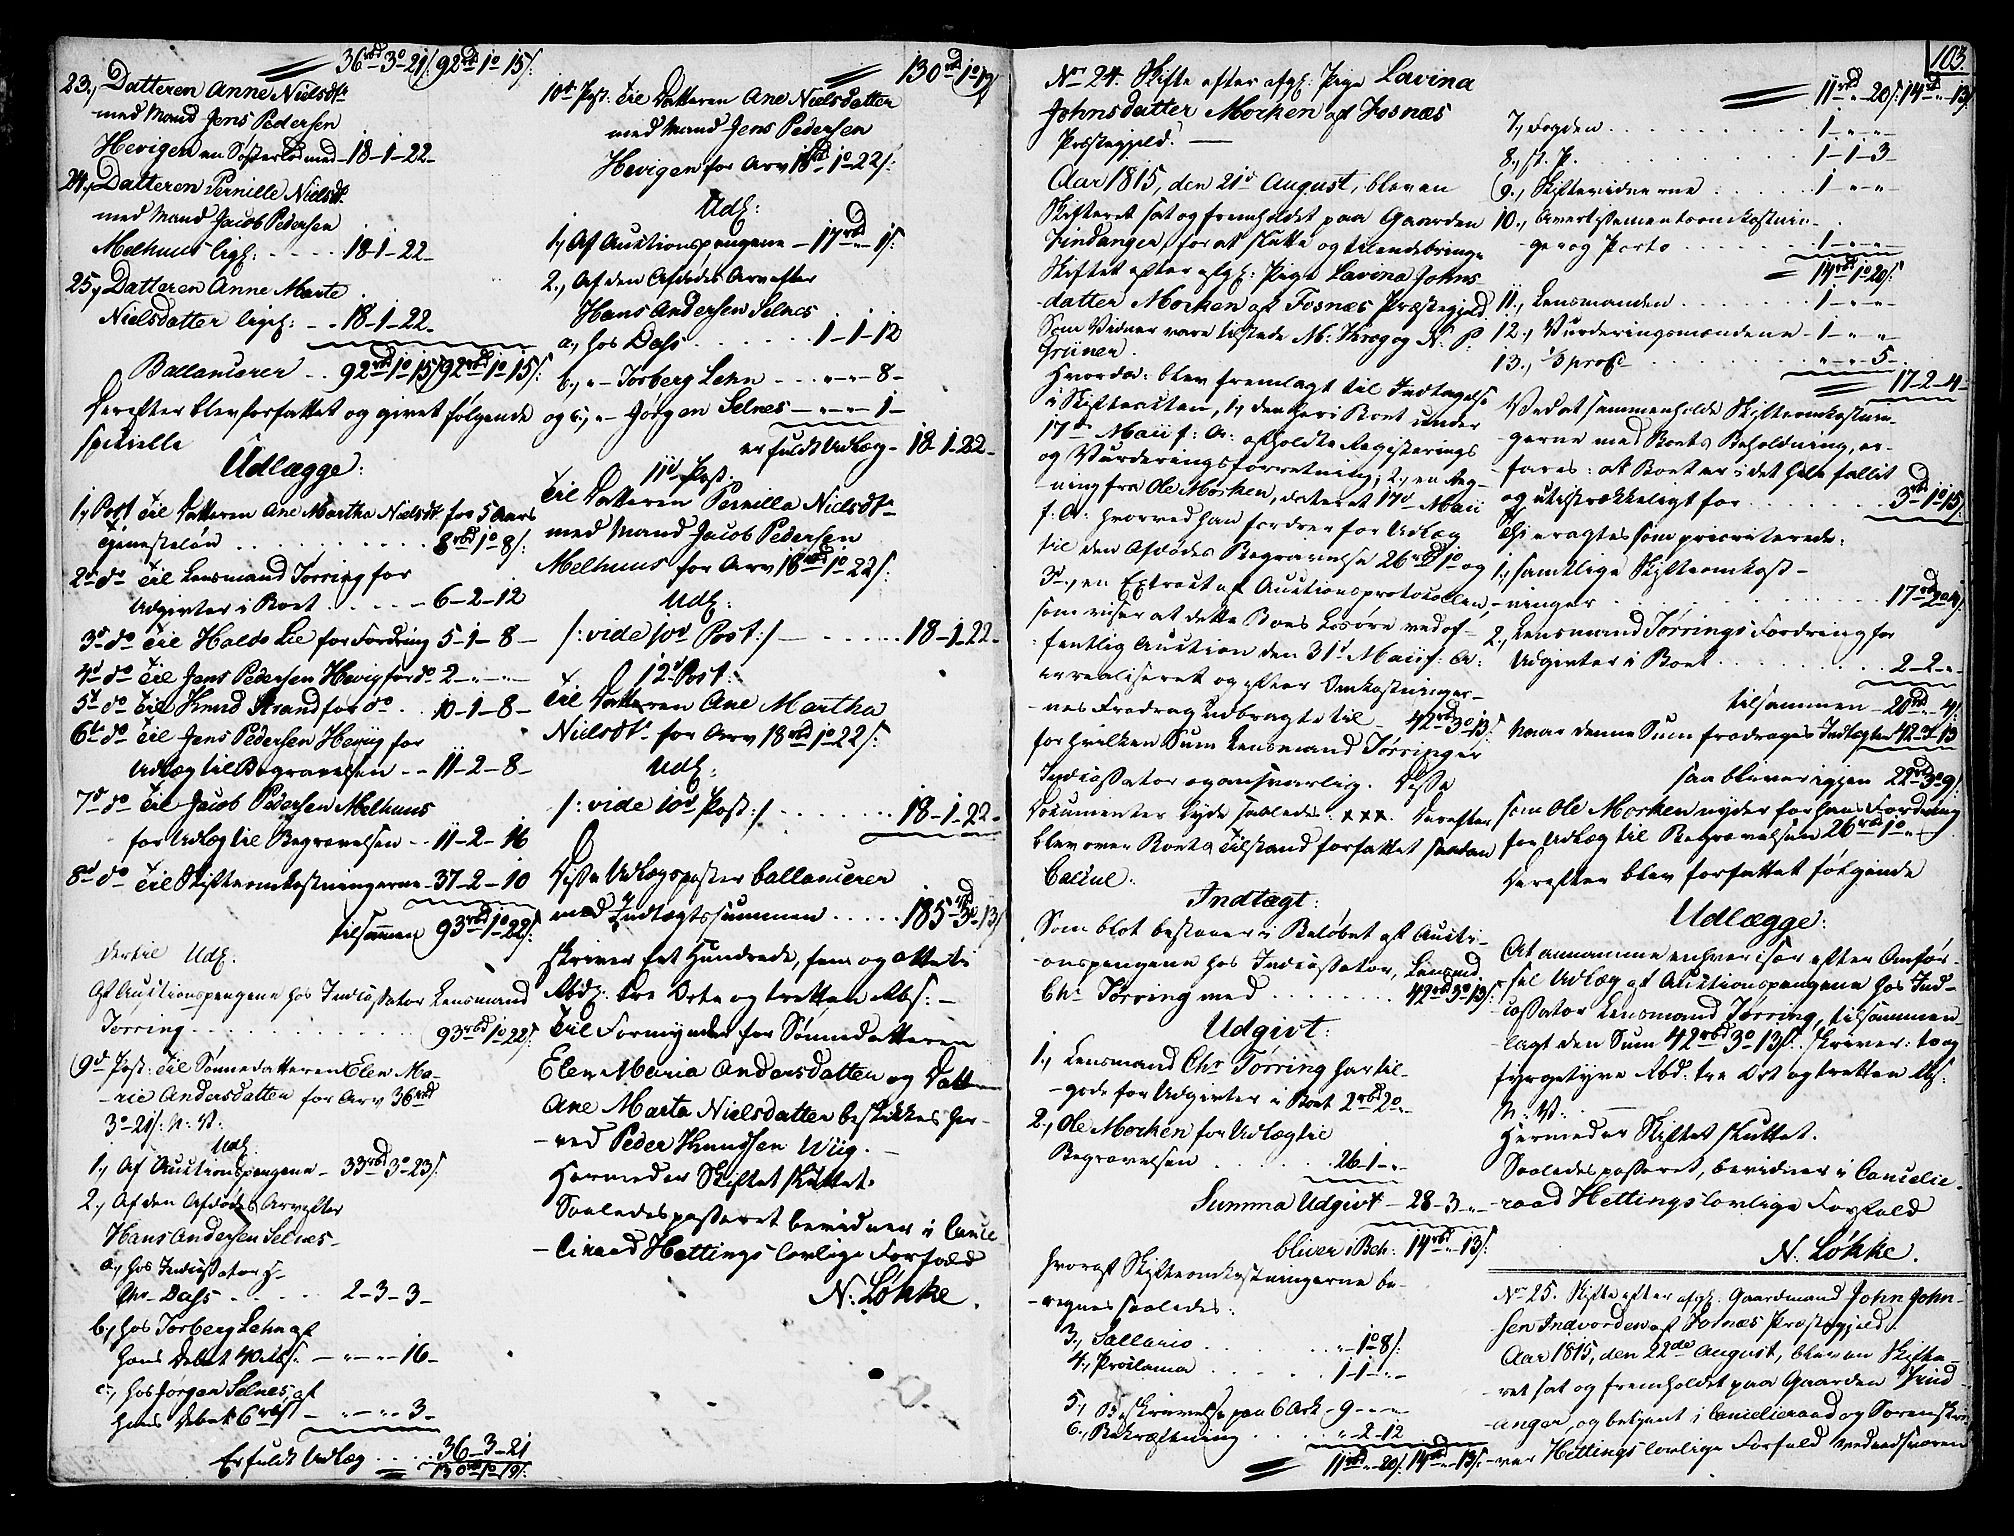 36rbd 3o 21s: 92rbd 1o 15s:
23., Datteren Anne Nielsdtr
med Mand Jens Pedersen
Hevigen en Søsterlod med - 18-1-22-
24., Datteren Pernille Nielsdr
med Mand Jacob Pedersen
Melhuus ligs: - - - - 18-1-22-
25., Datteren Anne Marte
Nielsdatter ligs: - - 18-1-22-
Ballancerer - - 92rbd 1o 15s 92rbd 1o 15s:
Derefter blev forfattet og givet følgende
specielle
Udlægge:
1., Post til Datteren Ane Martha Nielsdr for 5 Aars
Tjenesteløn . . . . . . . . 8rbd 1o 8s:
2d do til Lensmand Torring for
Udgivter i Boet . . . . - 6-2-12
3d do til Halds Lie for Fordring 5-1-8-
4d do til Jens Pedersen Hevig for do 2-"-"-
5t do til Knud Strand for do . . 10-1-8-
6te do til Jens Pedersen Hevig for
Udlæg til Begravelsen - - 11-2-8-
7d do til Jacob Pedersen Melhuus
for Udlæg til Begravelsen - - 11-2-16
8d do til Skifteomkostningerne - 37-2-10
tilsammen 93rbd 1o 22s:
Dertil Udl:
Af Auctionspengene hos Incassator Lensmand
Torring . . . . . . . . 93rbd 1o 22s:
9d Post: til Sønnedatteren Elen Ma-
-rie Andersdatter for Arv 36rbd
3o 21s: N: V:
Udl:
1., Af Auctionspengene - 33rbd 3o 23s:
2., Af den Afdødes Arv efter
Hans Andersen Selnes-
a., hos Incassator H-
Chr Dass . . . . . 2-3-3-
b., hos Torberg Lehn af
hans Debet 40 rbs: - "-"-16-
c., hos Jørgen Selnes, af
hans Debet 6 rbs - "-"-3-
Er fuldt Udlæg . . . . 36-3-21
130rbd 1o 19s:
130rbd 1o 19s
10de Post. til Datteren Ane Nielsdatter
med Mand Jens Pedersen
Hevigen for Arv 18rbd 1o 22s:
Udl:
1., Af Auctionspengene - 17rbd "- 1s:
2., Af den Afdødes Arv efter
Hans Andersen Selnes
a., hos Dass . . . . . . . 1-1-12
b., "- Torberg Lehn - - - "-"-8-
og c., "- Jørgen Selnes - "-"-1-
er fuldt Udlæg - 18-1-22-
11d Post.
Til Datteren Pernilla Nielsdtr
med Mand Jacob Pedersen
Melhuus for Arv 18rbd 1o 22s:
Udl:
/: vide 10d Post :/ - . . . . . . 18-1-22-
12d Post:
Til Datteren Ane Martha
Nielsdtr for Arv 18rbd 1o 22s:
Udl:
/: vide 10d Post :/ . . . . . . . 18-1-22-
Disse Udlægsposter ballancerer
med Indtægtssummen . . . . . 185rbd 3o 13s
skriver Et Hundrede, fem og otteti
Rbd:, tre Orte og tretten Rbs: -
Til Formynder for Sønnedatteren
Elen Maria Andersdatter og Datter
Ane Marta Nielsdatter beskikkes her-
-ved Peder Knudssen Wiig. -
Hermed er Skiftet sluttet.
Saaledes passeret bevidner i Cance
-liraad Hettings lovlige Forfald
N: Løkke.
103.
No 24. Skifte efter afg: Pige Lavina
Johnsdatter Morken af Fosnæs
Præstegjeld. -
Aar 1815, den 21d August, blev en
Skifteret sat og fremholdet paa Gaarden
Hindanger, for at slutte og tilendebringe
Skiftet efter afg: Pige Lavina Johns-
-datter Morken af Fosnæs Præstegjeld.
Som Vidner vare tilstede M: Krog og N: P:
Grüner.
Hvorda: blev fremlagt til Indtagelse
i Skifteacten, 1., den her i Boet under
17de Maii f: A: afholdte Registerings
og Vurderingsforretning; 2., en Reg-
-ning fra Ole Morken, dateret 17d Maii
f: A: hvorved han fordrer for Udlæg
til den Afdødes Begravelse 26rbd 1o og
3d., en Extract af Auctionsprotocollen,
som viser at dette Boes Løsøre ved of-
-fentlig Auction den 31d Maii f: A:
er realiseret og efter Omkostninger-
-nes Fradrag udbragte til - 42rbd 3o 13s:
for hvilken Sum Lensmand Tørring er
Incassator og ansvarlig. Disse
Documenter lyde saaledes xxx. Derefter
blev over Boets Tilstand forfattet saadan
Calcul.
Indtægt:
Som blot bestaaer i Beløbet af Aucti-
-onspengene hos Incassator, Lensmd
Chr Torring med . . . . . . . 42rbd 3o 13s:
Udgivt:
1., Lensmand Chr Torring har til-
-gode for Udgivter i Boet 2rbd 2o-
2., Ole Morken for Udlæg til
Begravelsen . . . . . 26-1-"-
Summa Udgivt - 28-3-"-
bliver i Beh: 14rbd "- 13s:
hvoraf Skifteomkostningerne be-
-regnes saaledes:
3., Sallario . . . . . . "- 1o 8s:
4., Proclama . . . . . 1-1-"-
5., Beskrivelse paa 6 Ark - 9-"-"-
6., Bekræftning . . . . "-2-12
11rbd "-20s: 14rbd "-13s:
11rbd "-20s: 14rbd "-13s
7., Fogden . . . . . . . . . 1-"-"-
8., st. P. . . . . . . . . . 1-1-3-
9., Skiftevidnerne . . . . . 1-"-"-
10., Avertissementsomkostnin-
-ger og Porto . . . . . . 1-"-"-
14rbd 1o 20s:
11., Lensmanden . . . . . . . 1-"-"-
12., Vurderingsmændene - 1-"-"-
13., 1/3 proc. . . . . . . "-"-5-
17-2-4-
Ved at sammenholde Skifteomkostnin-
-gerne med Boets Beholdning, er-
-fares: at Boet er i det hele fallit
og utilstrækkeligt for . . . . . 3rbd 1o 15s:
Thi eragtes som prioriterede:
1., samtlige Skifteomkost-
-ninger . . . . . . . . . 17rbd 2o 4s:
2., Lensmand Torrings Fordring for
Udgivter i Boet . . . . . . . 2-2-"-
tilsammen - 20rbd "- 4s:
Naar denne Sum fradrages Indtægten 42-3-13
saa bliver igjen 22rbd 3o 9s:
som Ole Morken nyder for hans Fordring
for Udlæg til Begravelsen 26rbd 1o "-
Derefter blev forfattet følgende
Udlægge:
At annamme enhver især efter Anfør-
-sel Udlæg af Auctionspengene hos Inc-
-cassator Lensmand Tørring, tilsammen-
-lagt den Sum 42rbd 3o 13s: skriver: to og
fyrgetyve Rbd: tre Ort og tretten Rbs:
N: V: -
Hermed er Skiftet sluttet.
Saaledes passeret, bevidner i Cancelie-
-raad Hettings lovlige Forfald
N: Løkke.
No 25. Skifte efter afg: Gaardmand John John-
sen Indvorden af Fosnæs Præstegjeld.
Aar 1815, den 22de August, blev en Skifte-
-ret sat og fremholdet paa Gaarden Hind-
-anger, og betjent i Cancelieraad og Sorenskri-
-ver Hettings lovlige Forfald ved edsvoren